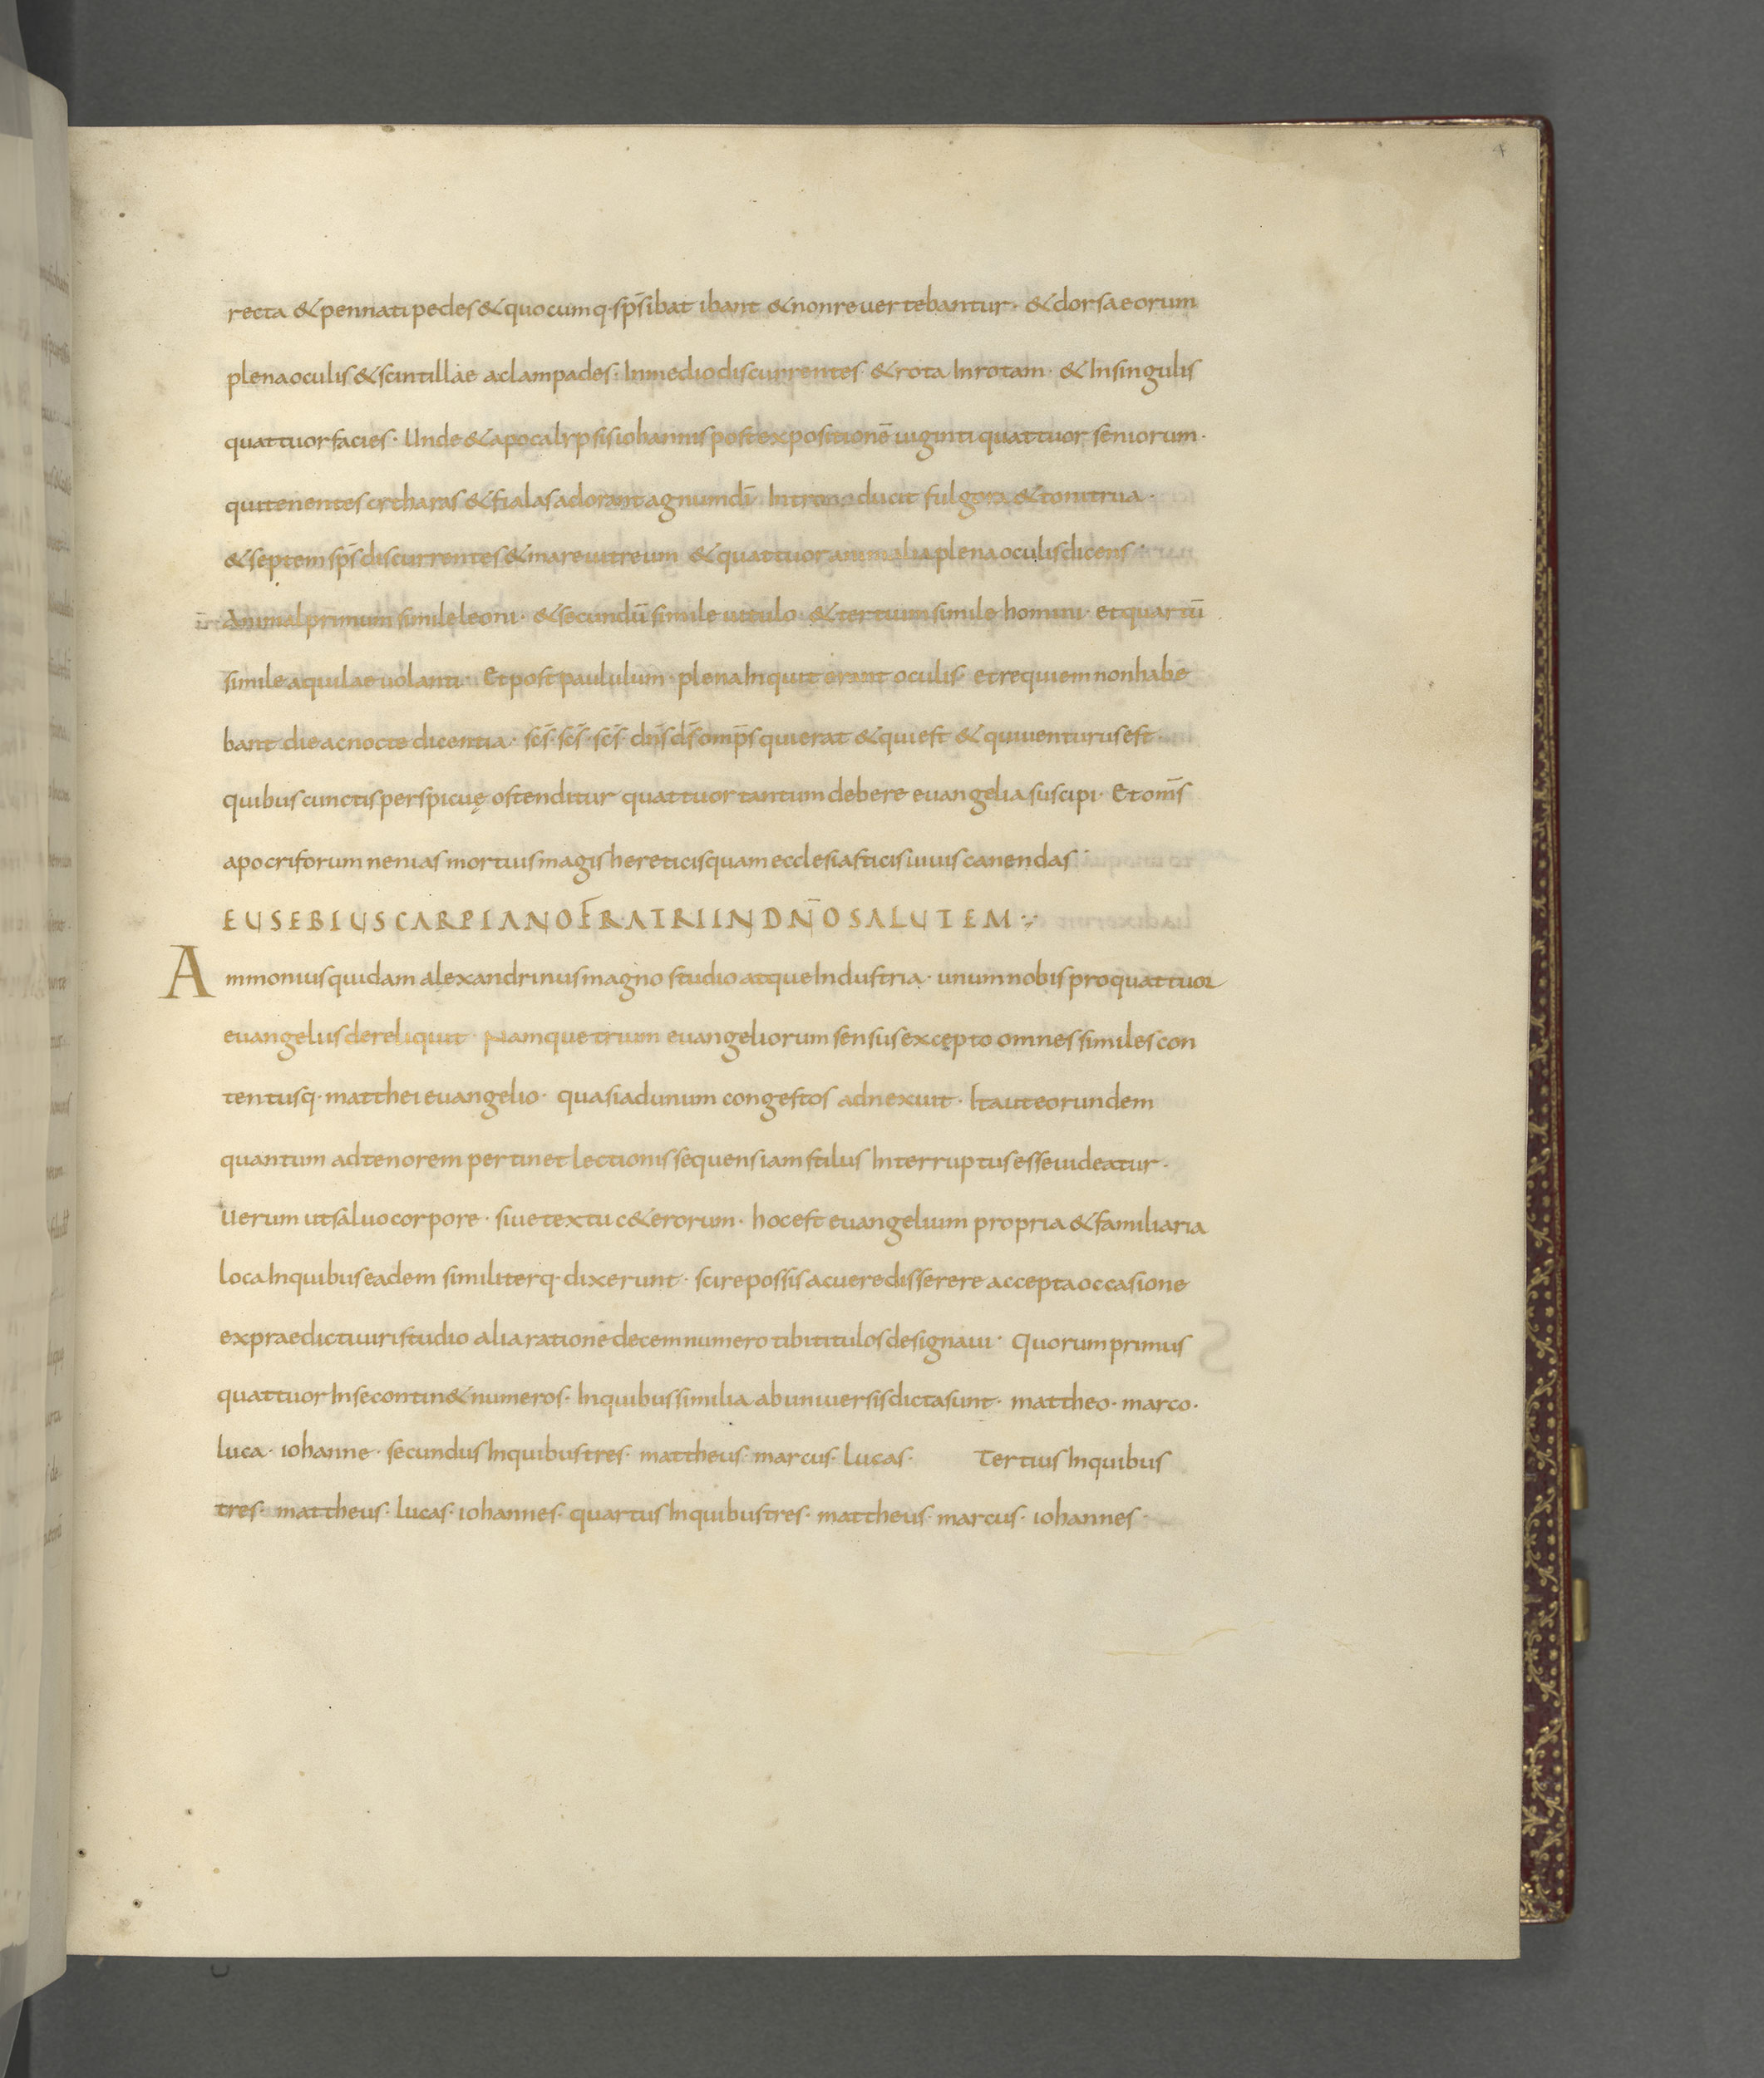 4
recta & pennati pedes & quocumq· sp̄s ibat ibant & non reuertebantur· & dorsa eorum
plena oculis & scintillae ac lampades· In medio discurrentes & rota In rotam· & In singulis
quattuor facies· Unde & apocalypsis iohannis post expositionē uiginti quattuor seniorum·
qui tenentes cytharas & fialas adorant agnum dī Introducit fulgora & tonitrua·
& septem sp̄s discurrentes & mare uitreum & quattuor animalia plena oculis dicens
Animal primum simile leoni· & secundū simile uitulo & tertium simile homini· et quartū
simile aquilae uolanti· Et post paululum· plena Inquit erant oculis· et requiem non habe
bant die ac nocte dicentia· scs̄· scs̄· scs̄· dn̄s ds̄ omp̄s qui erat & qui est & qui uenturus est
quibus cunctis perspicuę ostenditur quattuor tantum debere euangelia suscipi· Et omīs
apocriforum nenias mortuis magis hereticis quam ecclesiasticis uiuis canendas·
EUSEBIUS CARPIANO FRATRI IN DN̄O SALUTEM
Ammonius quidam alexandrinus magno studio atque Industria· unum nobis pro quattuor
euangeliis dereliquit· Namque trium euangeliorum sensus excępto omnes similes con
tentusq· matthei euangelio· quasi ad unum congestos adnexuit· Ita ut eorundem
quantum ad tenorem pertinet lectionis sequens iam stilus Interruptus esse uideatur·
Uerum ut saluo corpore· siue textu c&erorum· hoc est euangelium propria & familiaria
loca In quibus eadem similiterq· dixerunt· scire possis ac uere disserere accepta occasione
ex praedicti uiri studio alia ratione decem numero tibi titulos designaui· Quorum primus
quattuor In se contin& numeros· In quibus similia ab uniuersis dicta sunt· mattheo· marco·
luca· iohanne· secundus In quibus tres· mattheus· marcus· lucas· Tertius In quibus
tres· mattheus· lucas· iohannes· quartus In quibus tres· mattheus· marcus· iohannes·